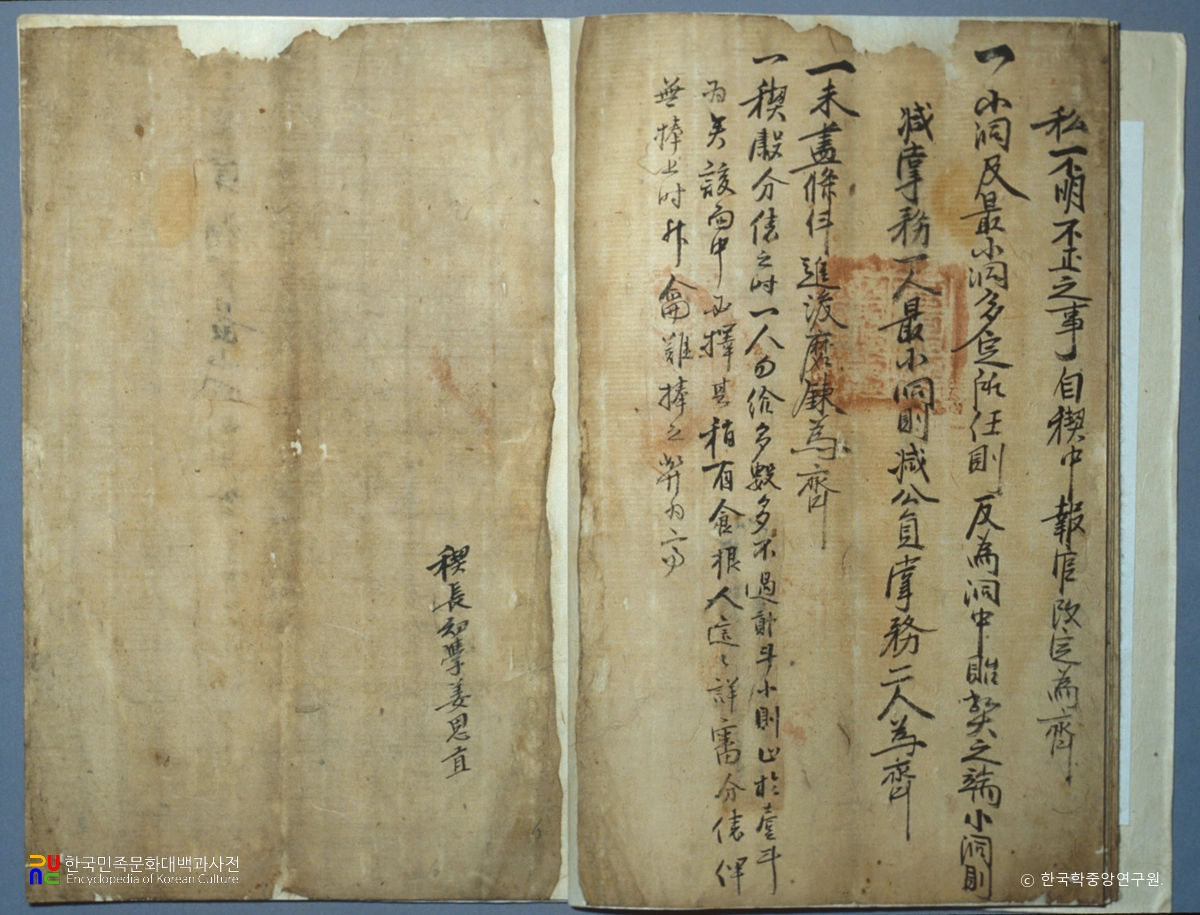 私一不明不正之事自稧中報官改定爲齊
一小洞及最小洞多定所任則反爲洞中貽弊之端小洞則
減掌務一人最小洞則減公員掌務二人爲齊
一未盡條件追後磨鍊爲齊
一稧穀分俵之時一人勿給多數多不過貳斗小則止於壹斗
爲矣該面中必擇其稍有食根人這這詳審分俵俾
無捧上時升龠難捧之弊爲
稧長幼學姜思直
한국민족문화대백과사전
Encyclopedia of Korean Culture
© 한국학중앙연구원.